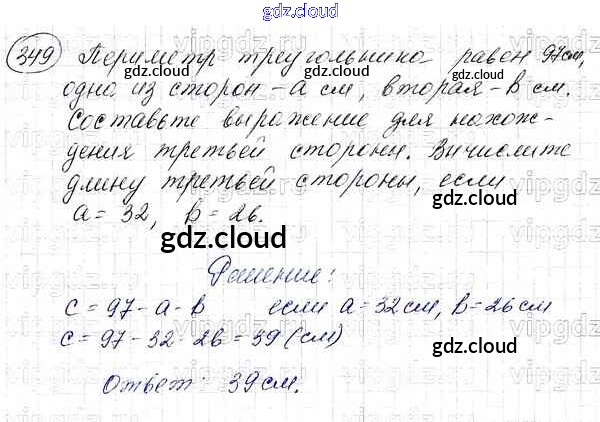 gdz.cloud
349 Периметр треугольника равен 97см,
одна из сторон - а см, вторая - в см.
Составьте выражение для нахож-
дения третьей стороны. Вичислите
длину третьей стороны, если
а = 32, в = 26.
gdz.cloud
Решение:
с = 97 - а - в если а = 32см, в = 26см
с = 97 - 32 - 26 = 39 (см)
Ответ: 39см.
gdz.cloud
gdz.cloud
gdz.cloud
gdz.cloud
gdz.cloud
gdz.cloud
gdz.cloud